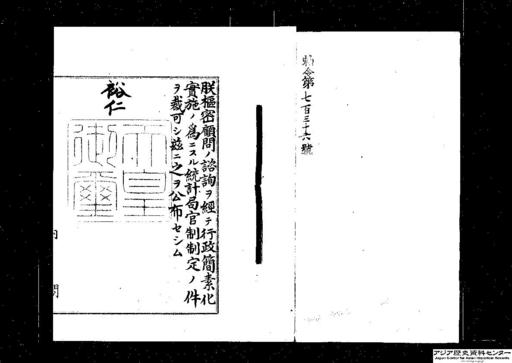 勅令第七百三十六號
朕樞密顧問ノ諮詢ヲ經テ行政簡素化
實施ノ爲ニスル統計局官制制定ノ件
ヲ裁可シ茲ニ之ヲ公布セシム
裕仁
天皇
御璽
内
閣
アジア歴史資料センター
Japan Center for Asian Historical Records